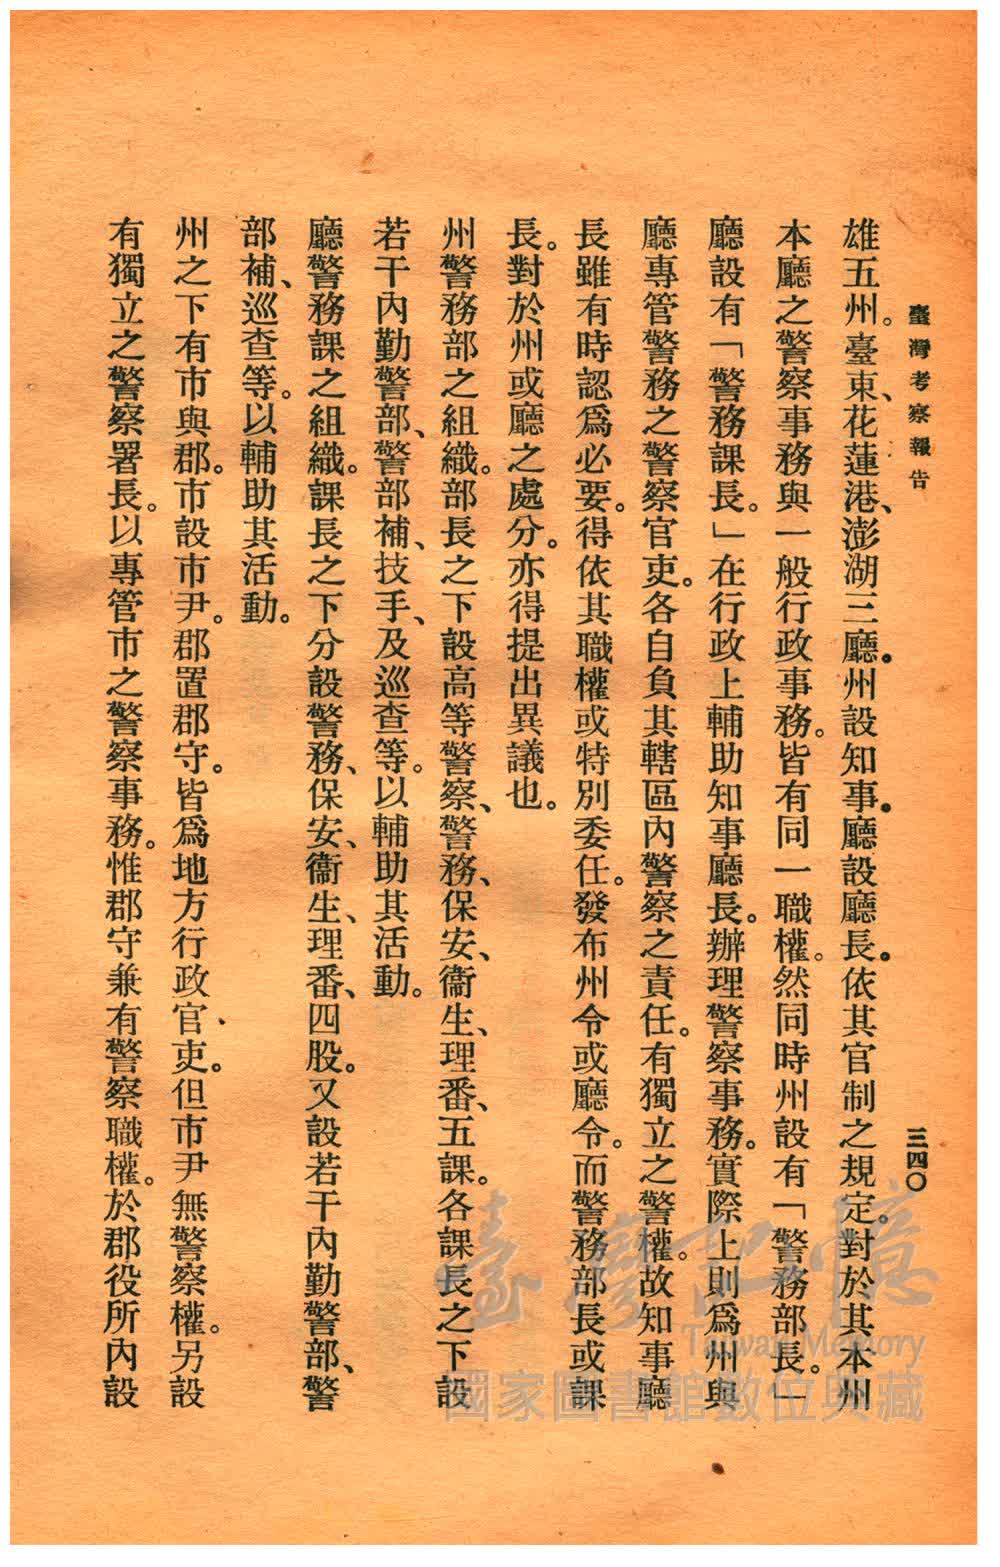 臺灣考察報告
三四〇
雄五州。臺東、花蓮港、澎湖三廳。州設知事。廳設廳長。依其官制之規定。對於其本州
本廳之警察事務與一般行政事務。皆有同一職權。然同時州設有「警務部長。」
廳設有「警務課長。」在行政上輔助知事廳長。辦理警察事務。實際上則爲州與
廳專管警務之警察官吏。各自負其轄區內警察之責任。有獨立之警權。故知事廳
長雖有時認爲必要。得依其職權或特別委任。發布州令或廳令。而警務部長或課
長。對於州或廳之處分。亦得提出異議也。
州警務部之組織。部長之下設高等警察、警務、保安、衞生、理番、五課。各課長之下設
若干內勤警部、警部補、技手、及巡查等。以輔助其活動。
廳警務課之組織。課長之下分設警務、保安、衞生、理番、四股。又設若干內勤警部、警
部補、巡查等。以輔助其活動。
州之下有市與郡。市設市尹。郡置郡守。皆爲地方行政官吏。但市尹無警察權。另設
有獨立之警察署長。以專管市之警察事務。惟郡守兼有警察職權。於郡役所內設
臺灣記憶
Taiwan Memory
國家圖書館數位典藏